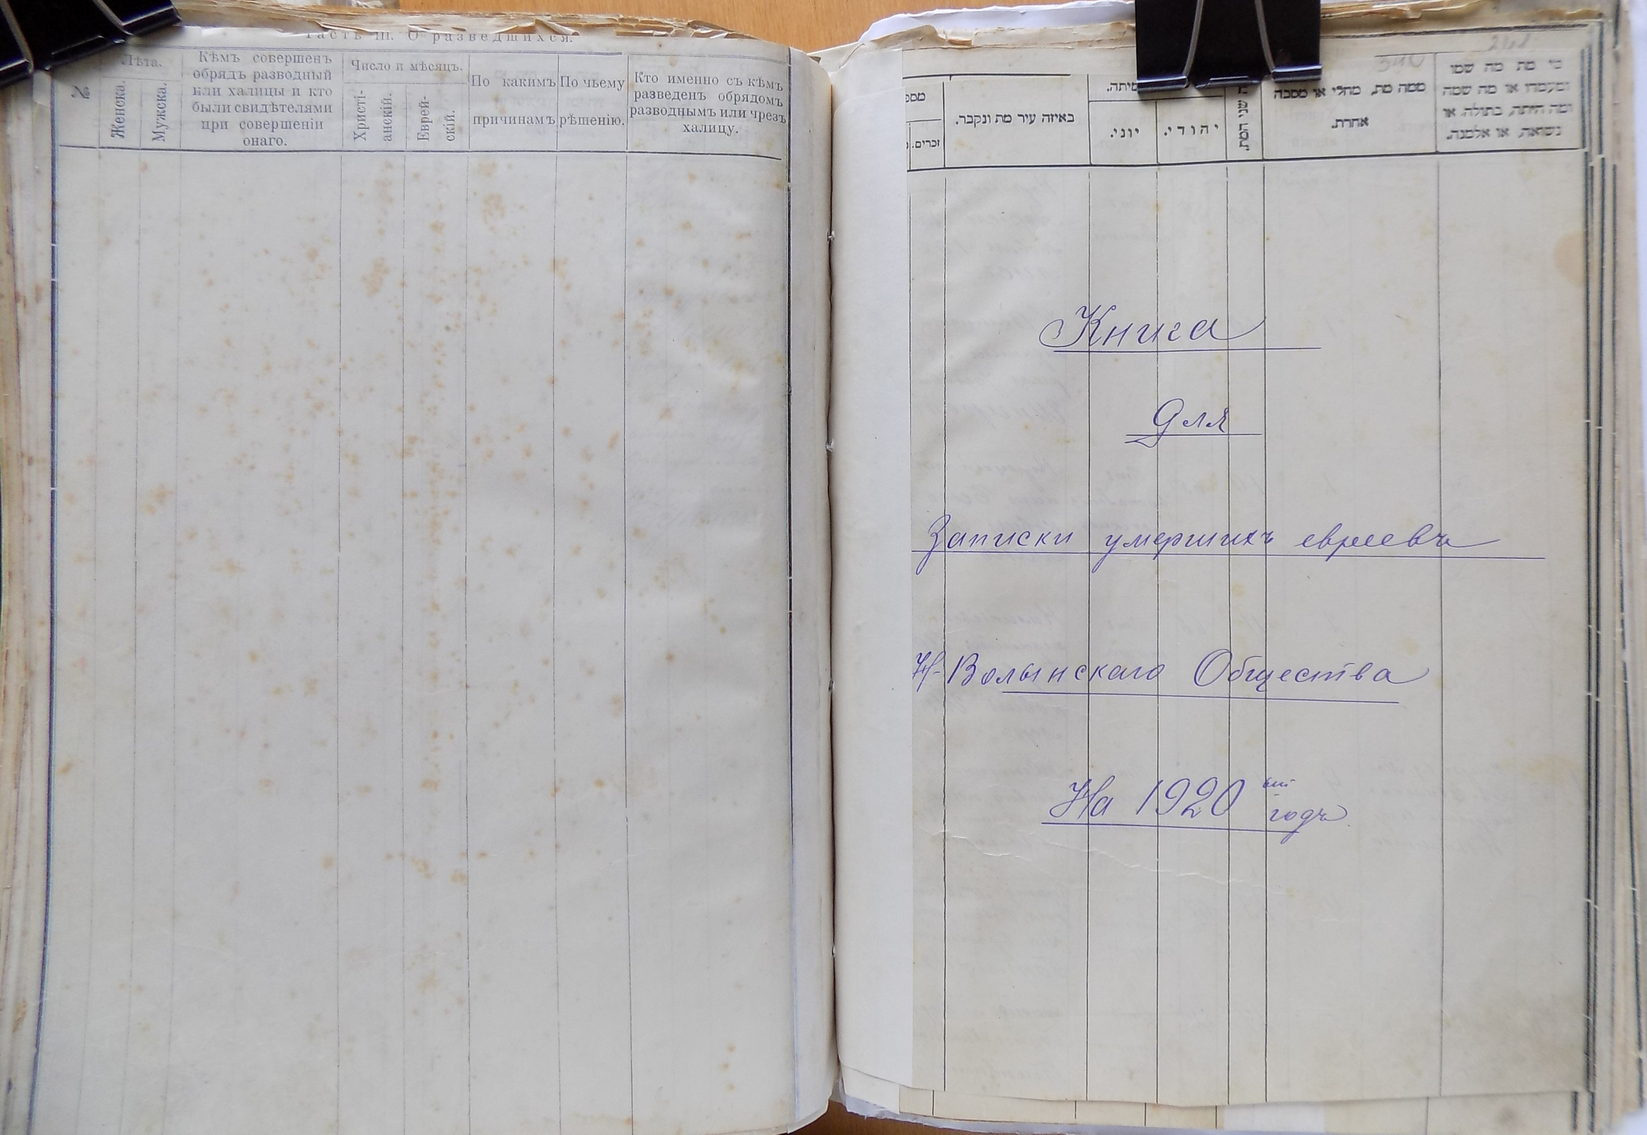 Часть III. О разведшихся.
№
Лѣта.
Женска.
Мужска.
Кѣмъ совершенъ
обрядъ разводный
или халицы и кто
были свидѣтелями
при совершеніи
онаго.
Число и мѣсяцъ.
Христі-
анскій.
Еврей-
скій.
По какимъ
причинамъ
По чьему
рѣшенію.
Кто именно съ кѣмъ
разведенъ обрядомъ
разводнымъ или чрезъ
халицу.
זכרים.
באיזה עיר מת ונקבר.
יוני.
יהודי.
שני המת.
ממה מת, מחלי או מסבה
אחרת.
מי מת מה שמו
ומעמדו או מה שמה
ומה היתה, בתולה או
נשואה, או אלמנה.
Книга
для
Записки умершихъ евреевъ
Н-Волынскаго Общества
На 1920 ый годъ